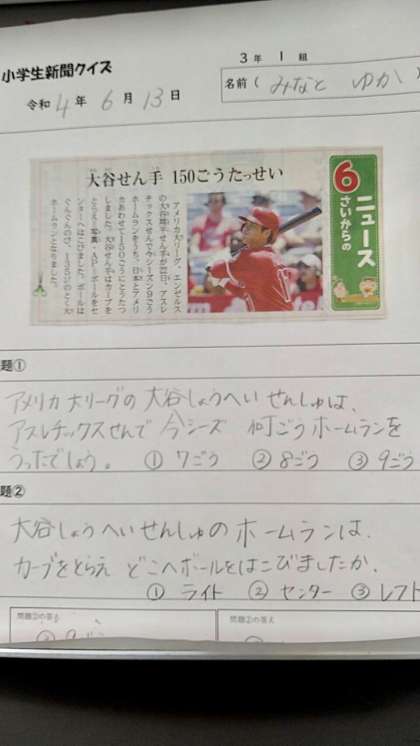 小学生新聞クイズ
3年 1組
令和4年6月13日
名前(みなと ゆか)
6
さいからの
ニュース
大谷せん手 150ごうたっせい
アメリカ大リーグ、エンゼルス
の大谷翔平せん手が22日、アスレ
チックスせんで今シーズン9ごう
ホームランをうち、日本とアメリ
カあわせて150ごうにとうたつ
しました。大谷せん手はカーブを
とらえ、
ンターへはこびました。ボールは
ぐんぐんのび、
ホームランとなりました。
題①
アメリカ大リーグの大谷しょうへいせんしゅは、
アスレチックスせんで今シーズ 何ごうホームランを
うったでしょう。 ①7ごう ②8ごう ③9ごう
題②
大谷しょうへいせんしゅのホームランは、
カーブをとらえ どこへボールをはこびましたか。
①ライト ②センター ③レフト
問題②の答え